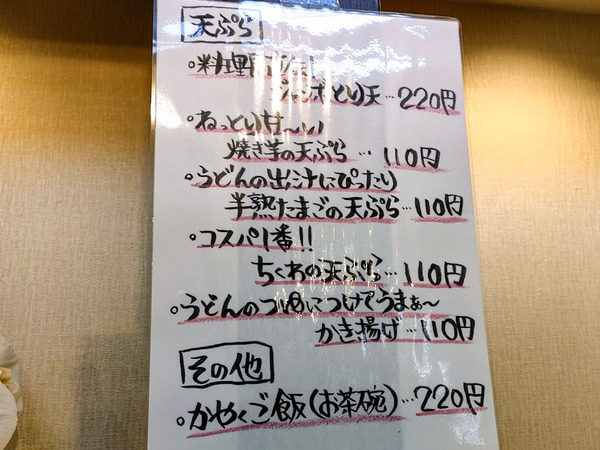 天ぷら
。料理
ジャンボとり天…220円
。ねっとり甘〜い
焼き芋の天ぷら…110円
。うどんの出汁にぴったり
半熟たまごの天ぷら…110円
。コスパ1番!!
ちくわの天ぷら…110円
。うどんのつゆにつけてうまぁ〜
かき揚げ…110円
その他
。かやくご飯(お茶碗)…220円